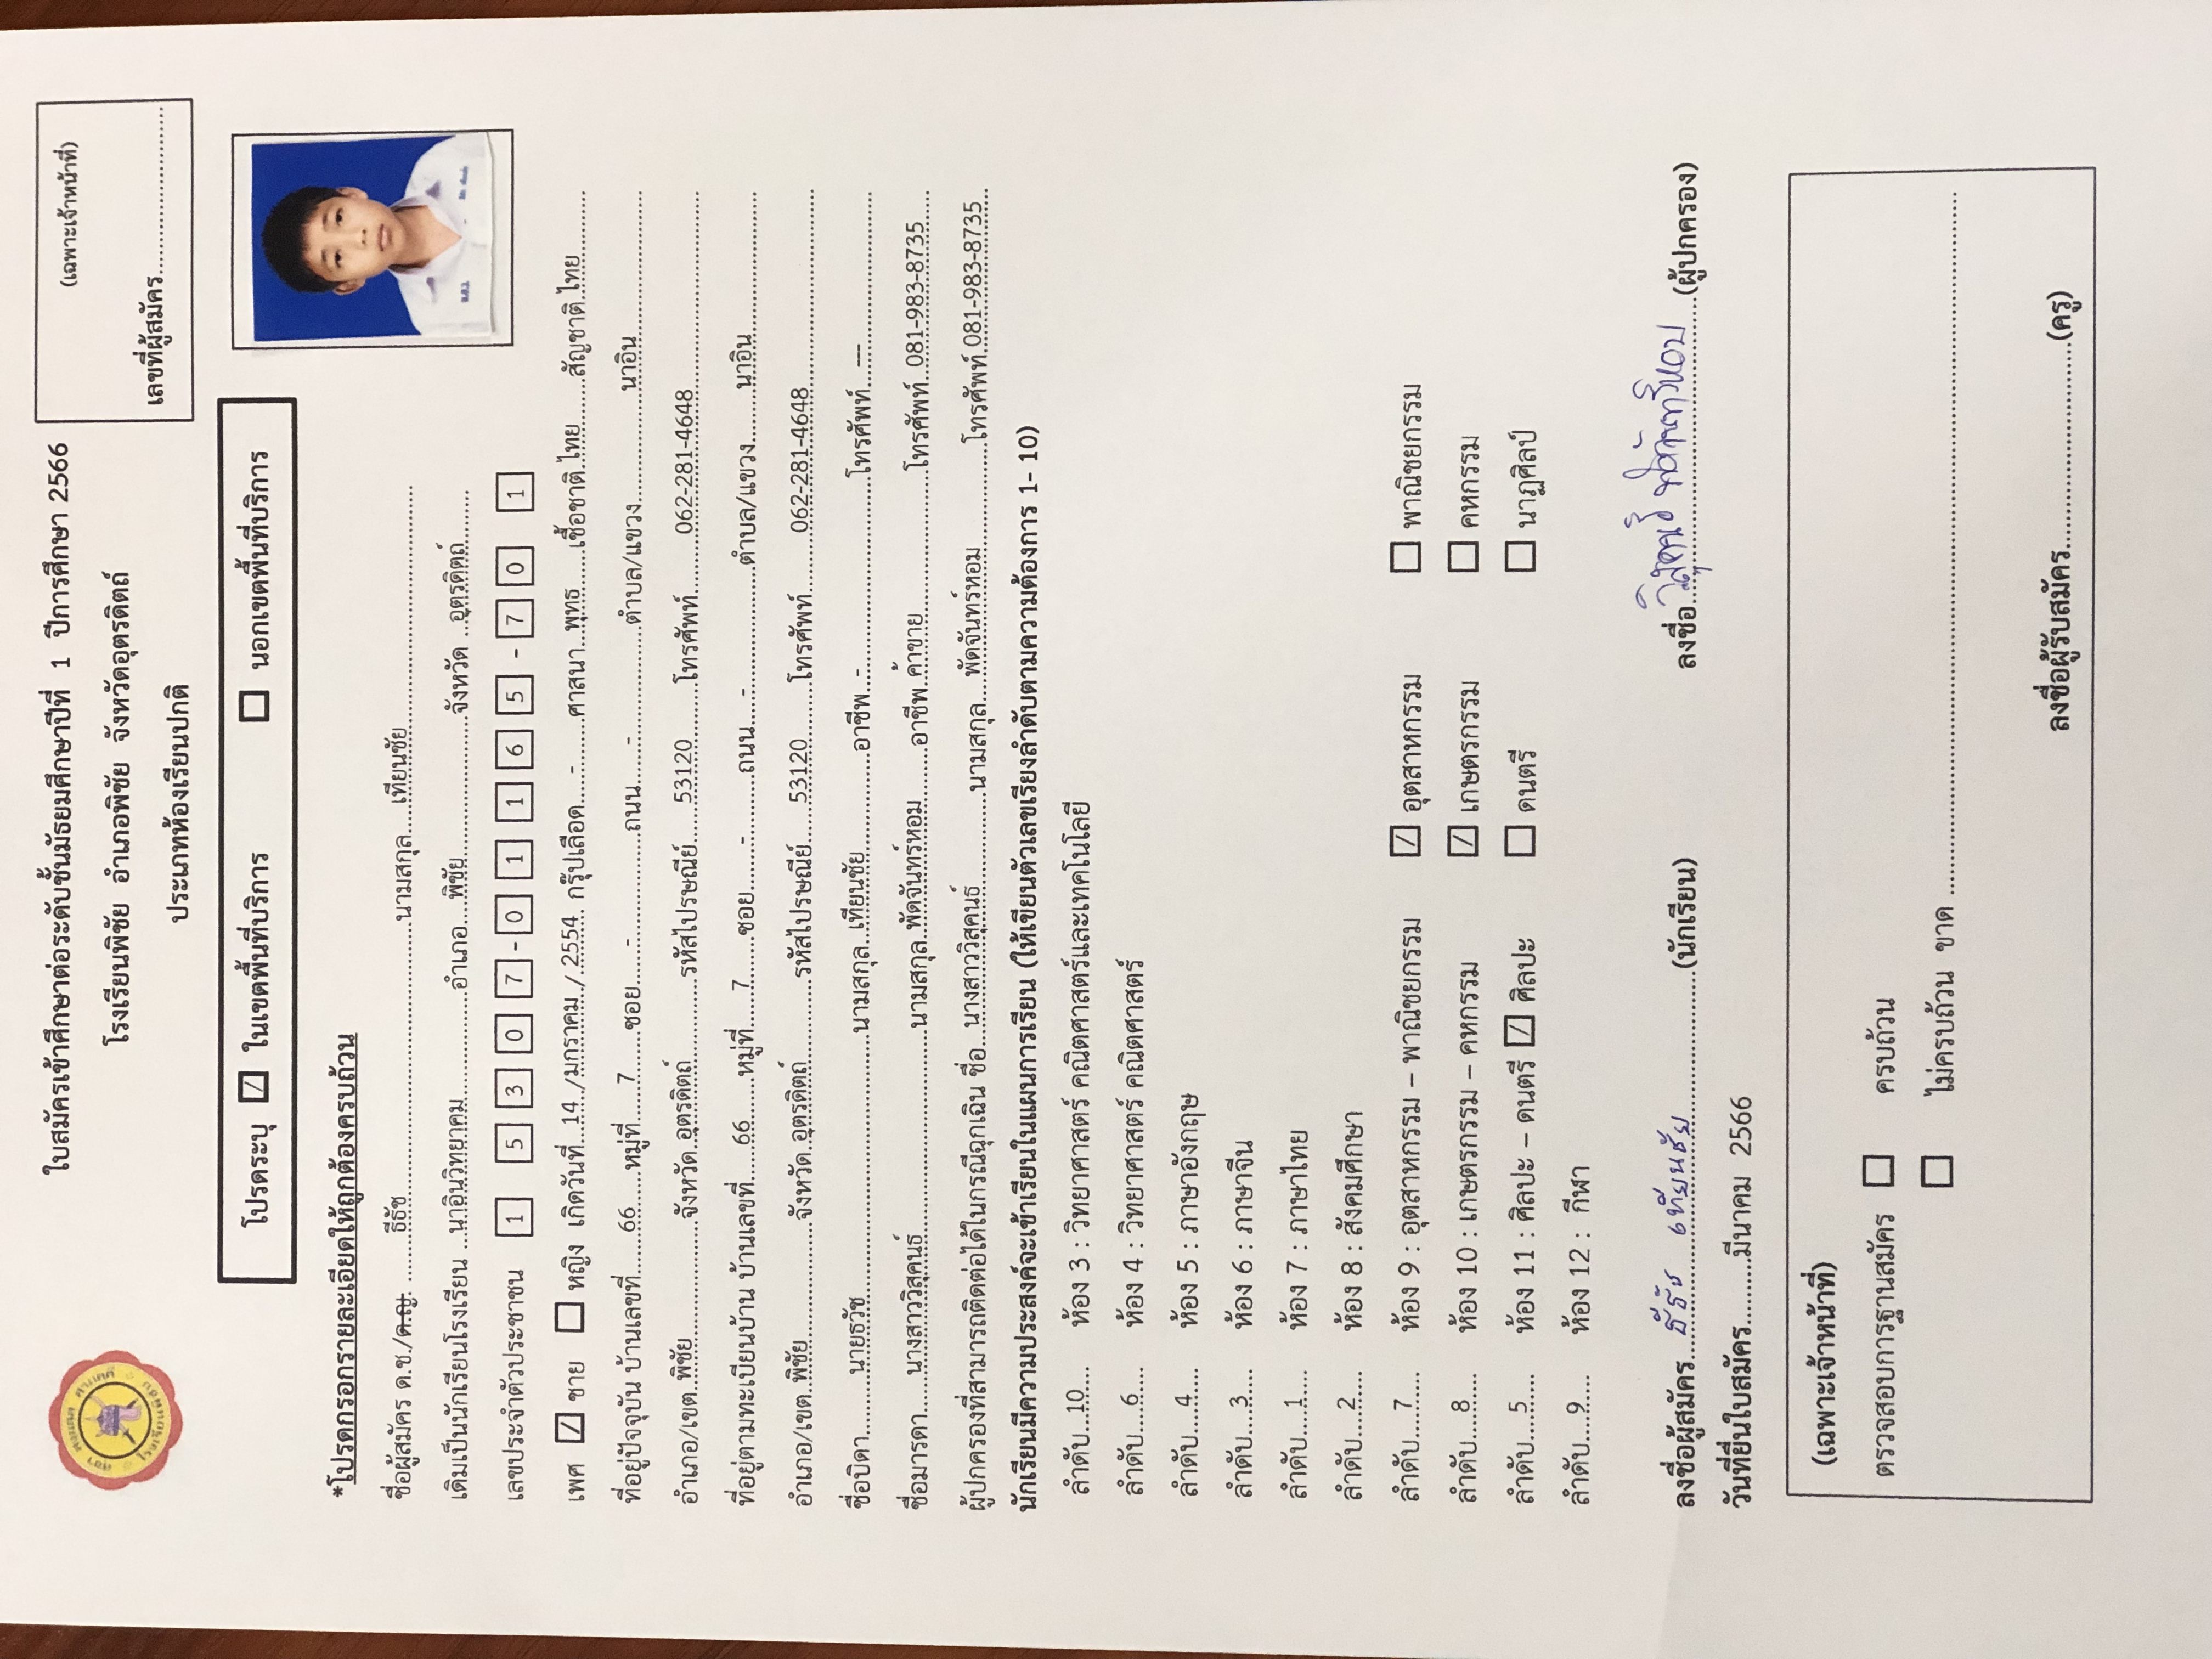 (เฉพาะเจ้าหน้าที่)
เลขที่ผู้สมัคร..............................
ใบสมัครเข้าศึกษาต่อระดับชั้นมัธยมศึกษาปีที่ 1 ปีการศึกษา 2566
โรงเรียนพิชัย อำเภอพิชัย จังหวัดอุตรดิตถ์
ประเภทห้องเรียนปกติ
โปรดระบุ ☑ ในเขตพื้นที่บริการ ☐ นอกเขตพื้นที่บริการ
*โปรดกรอกรายละเอียดให้ถูกต้องครบถ้วน
ชื่อผู้สมัคร ด.ช./ด.ญ. ......ธีธัช......นามสกุล....เทียนชัย......
เดิมเป็นนักเรียนโรงเรียน ...นาอินวิทยาคม......อำเภอ....พิชัย......จังหวัด ..อุตรดิตถ์......
เลขประจำตัวประชาชน 1 5 3 0 7 - 0 1 1 6 5 - 7 0 1
เพศ ☑ ชาย ☐ หญิง เกิดวันที่....14..../มกราคม../.2554. กรุ๊ปเลือด.....-......ศาสนา...พุทธ......เชื้อชาติ.ไทย......สัญชาติ.ไทย......
ที่อยู่ปัจจุบัน บ้านเลขที่......66......หมู่ที่.....7......ซอย.....-......ถนน......-......ตำบล/แขวง......นาอิน......
อำเภอ/เขต.พิชัย......จังหวัด.อุตรดิตถ์......รหัสไปรษณีย์......53120......โทรศัพท์......062-281-4648......
ที่อยู่ตามทะเบียนบ้าน บ้านเลขที่......66......หมู่ที่.....7......ซอย.....-......ถนน......-......ตำบล/แขวง......นาอิน......
อำเภอ/เขต..พิชัย......จังหวัด..อุตรดิตถ์......รหัสไปรษณีย์......53120......โทรศัพท์......062-281-4648......
ชื่อบิดา......นายธวัช......นามสกุล..เทียนชัย......อาชีพ...-......โทรศัพท์....---......
ชื่อมารดา......นางสาววิสุคนธ์......นามสกุล..พัดจันทร์หอม......อาชีพ.ค้าขาย......โทรศัพท์...081-983-8735......
ผู้ปกครองที่สามารถติดต่อได้ในกรณีฉุกเฉิน ชื่อ....นางสาววิสุคนธ์......นามสกุล....พัดจันทร์หอม......โทรศัพท์.081-983-8735......
นักเรียนมีความประสงค์จะเข้าเรียนในแผนการเรียน (ให้เขียนตัวเลขเรียงลำดับตามความต้องการ 1- 10)
ลำดับ....10.... ห้อง 3 : วิทยาศาสตร์ คณิตศาสตร์และเทคโนโลยี
ลำดับ.....6..... ห้อง 4 : วิทยาศาสตร์ คณิตศาสตร์
ลำดับ.....4..... ห้อง 5 : ภาษาอังกฤษ
ลำดับ.....3..... ห้อง 6 : ภาษาจีน
ลำดับ.....1..... ห้อง 7 : ภาษาไทย
ลำดับ.....2..... ห้อง 8 : สังคมศึกษา
ลำดับ.....7..... ห้อง 9 : อุตสาหกรรม – พาณิชยกรรม ☑ อุตสาหกรรม ☐ พาณิชยกรรม
ลำดับ.....8..... ห้อง 10 : เกษตรกรรม – คหกรรม ☑ เกษตรกรรม ☐ คหกรรม
ลำดับ.....5..... ห้อง 11 : ศิลปะ – ดนตรี ☑ ศิลปะ ☐ ดนตรี ☐ นาฏศิลป์
ลำดับ.....9..... ห้อง 12 : กีฬา
ลงชื่อผู้สมัคร....ธีธัช เทียนชัย......(นักเรียน) ลงชื่อ.วิสุคนธ์ พัดจันทร์หอม......(ผู้ปกครอง)
วันที่ยื่นใบสมัคร..........มีนาคม 2566
(เฉพาะเจ้าหน้าที่)
ตรวจสอบการฐานสมัคร ☐ ครบถ้วน
☐ ไม่ครบถ้วน ขาด ......................................................
ลงชื่อผู้รับสมัคร..............................(ครู)